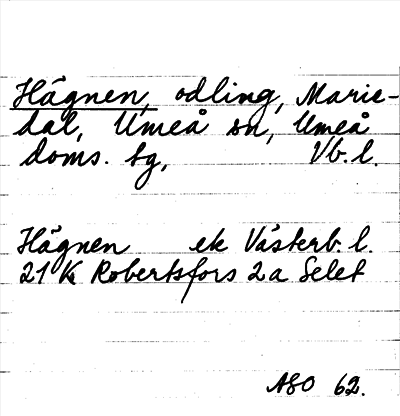 Hägnen, odling, Marie-
dal, Umeå sn, Umeå
doms. tg, Vb. l.
Hägnen ek Västerb. l.
21 K Robertsfors 2a Selet
ASO 62.